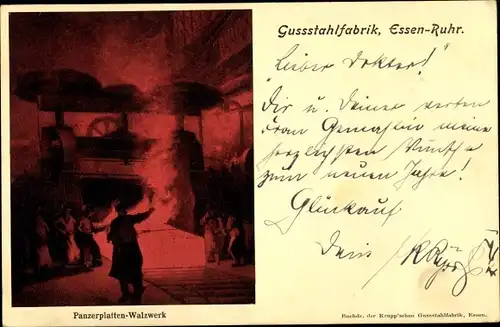 Gussstahlfabrik, Essen-Ruhr.
"Lieber Doktor!"
Dir u. Deiner werten
Frau Gemahlin meine
herzlichsten Wünsche
zum neuen Jahre!
Glückauf
Dein
Panzerplatten-Walzwerk
Buchdr. der Krupp'schen Gussstahlfabrik, Essen.